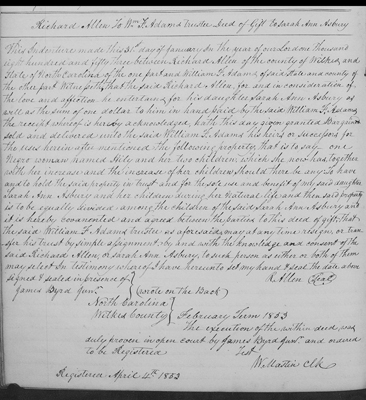 Richard Allen To Wm F. Adams trustee Deed of Gift to Sarah Ann Asbury
This Indenture made this 31st day of January in the year of our Lord one thousand
eight hundred and fifty three between Richard Allen of the county of Wilkes, and
State of North Carolina of the one part and William F. Adams, of said State and county of
the other part Witnesseth, that the said Richard Allen, for and in consideration of
the love and affection he entertains for his daughter Sarah Ann Asbury as
well as the sum of one dollar to him in hand paid by the said William F. Adams,
the receipt whereof is hereby acknowledged, hath this day given granted Bargained
sold and delivered unto the said William F. Adams his heirs or successors for
the uses herein after mentioned the following property, that is to say one
Negro woman named and her two children which she now has, together
with her increase and the increase of her children should there be any To have
and to hold the said property in trust and for the sole use and benefit of my said daughter
Sarah Ann Asbury and her children during her natural life and then said property
is to be equally divided among the children of the said Sarah Ann Asbury, and
it is hereby covenanted and agreed between the parties to this deed of gift, that
the said William F. Adams trustee as aforesaid may at any time resign or trans
fer his trust by simple assignment, by and with the knowledge and consent of the
said Richard Allen, or Sarah Ann Asbury to such person as either or both of them
may select In testimony whereof I have hereunto set my hand & seal the date above
signed & sealed in presence of R. Allen (Seal)
James Byrd (wrote on the Back)
North Carolina
Wilkes County February Term 1853
The execution of the within deed was
duly proven in open court by James Byrd and ordered
to be Registered Test
W. Mastin Clk
Registered April 4th 1853